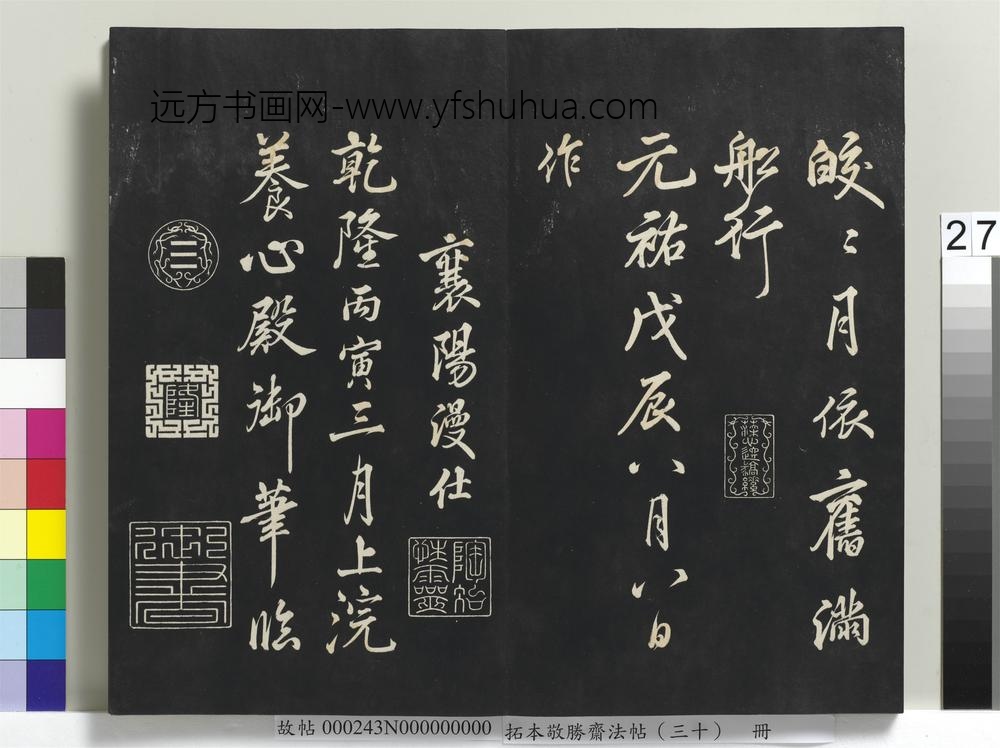 远方书画网-www.yfshuhua.com
皎〻月依舊滿
船行
元祐戊辰八月八日
作
襄陽漫仕
乾隆丙寅三月上浣
養心殿御筆臨
三
隆
陶冶
性靈
27
故帖 000243N000000000 拓本敬勝齋法帖（三十） 冊